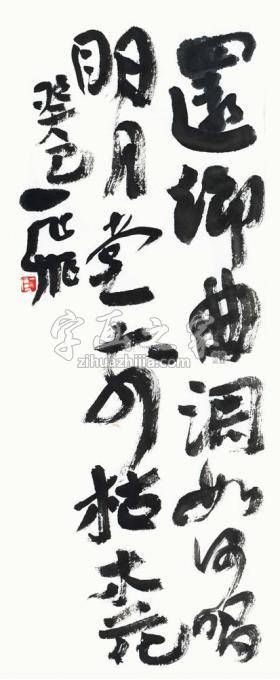 還鄉曲調如何唱
明月堂前枯木花
癸巳
字画之家
zihuazhijia.com